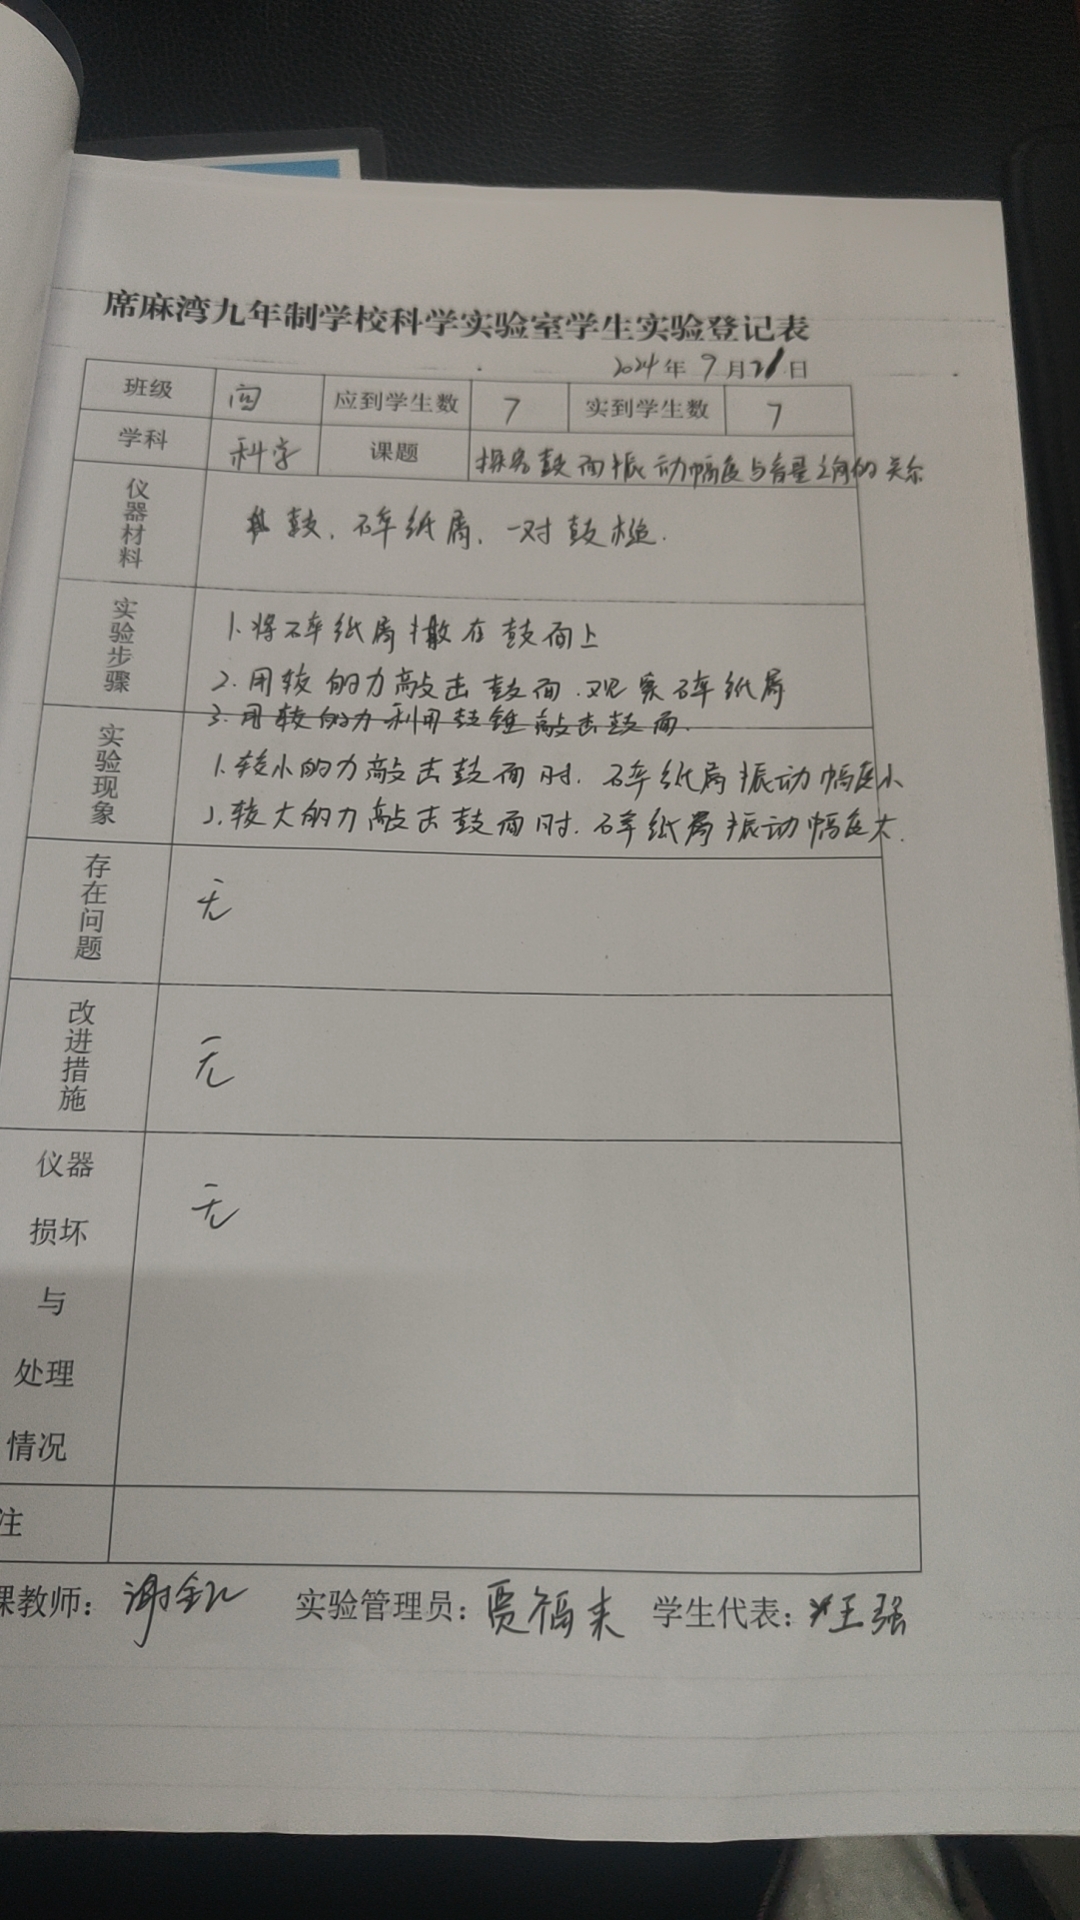 席麻湾九年制学校科学实验室学生实验登记表
2024年9月21日
班级 四 应到学生数 7 实到学生数 7
学科 科学 课题 探究鼓面振动幅度与音量之间的关系
仪器材料 鼓、碎纸屑、一对鼓槌.
实验步骤
1.将碎纸屑撒在鼓面上
2.用较的力敲击鼓面.观象碎纸屑
3.用较的力利用鼓锤敲击鼓面.
实验现象
1.较小的力敲击鼓面时.碎纸屑振动幅度小
2.较大的力敲击鼓面时.碎纸屑振动幅度大.
存在问题 无
改进措施 无
仪器损坏与处理情况 无
注
课教师: 谢 实验管理员: 贾福来 学生代表: 汪强